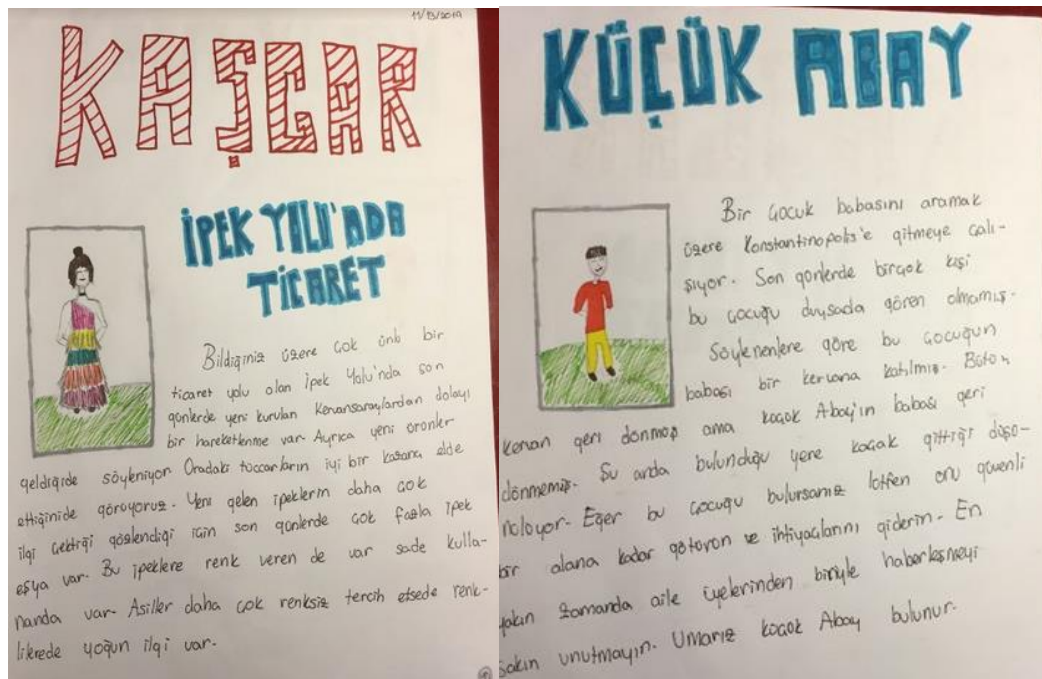 11/13/2019
KAŞGAR
İPEK YOLU'ADA
TİCARET
Bildiğiniz üzere çok ünlü bir
ticaret yolu olan İpek Yolu'nda son
günlerde yeni kurulan Kervansaraylardan dolayı
bir hareketlenme var. Ayrıca yeni ürünler
geldiğide söyleniyor Oradaki tüccarların iyi bir kazanç elde
ettiğinide görüyoruz. Yeni gelen ipeklerin daha çok
ilgi çektiği gözlendiği için son günlerde çok fazla ipek
eşya var. Bu ipeklere renk veren de var sade kulla-
nanda var. Asiller daha çok renksiz tercih etsede renk-
lilerede yoğun ilgi var.
KÜÇÜK ABAY
Bir çocuk babasını aramak
üzere Konstantinopolis'e gitmeye çalı-
şıyor. Son günlerde birçok kişi
bu çocuğu duysada gören olmamış.
Söylenenlere göre bu çocuğun
babası bir kervana katılmış. Bütün
kervan geri dönmüş ama küçük Abay'ın babası geri
dönmemiş. Şu anda bulunduğu yere kaçak gittiği düşü-
nülüyor. Eğer bu çocuğu bulursanız lütfen onu güvenli
bir alana kadar götürün ve ihtiyaçlarını giderin. En
yakın zamanda aile üyelerinden biriyle haberleşmeyi
sakın unutmayın. Umarız küçük Abay bulunur.